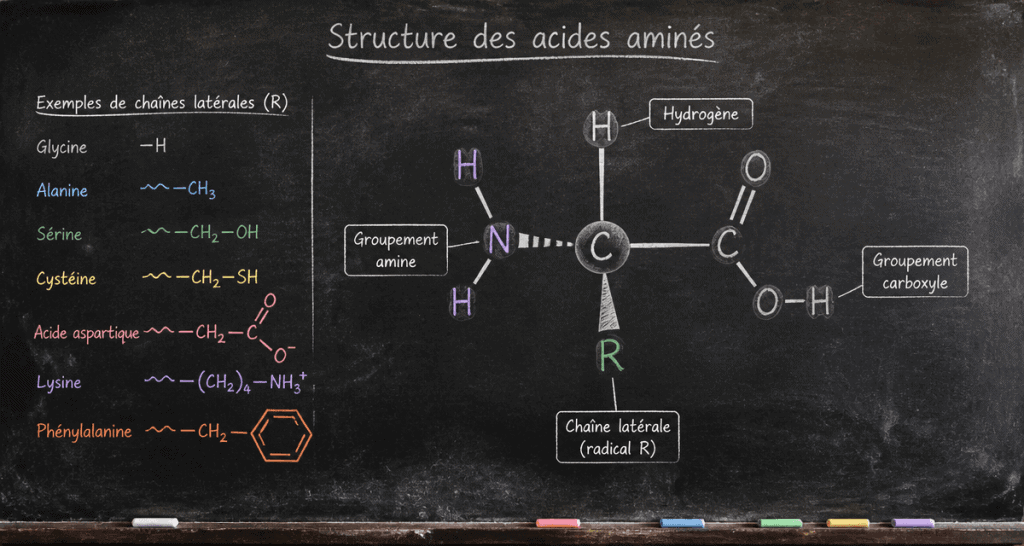 Structure des acides aminés
Exemples de chaînes latérales (R)
Glycine –H
Alanine –CH₃
Sérine –CH₂–OH
Cystéine –CH₂–SH
Acide aspartique –CH₂–C
O
O⁻
Lysine –(CH₂)₄–NH₃⁺
Phénylalanine –CH₂–
H
Hydrogène
H
O
N
C
C
Groupement
amine
Groupement
carboxyle
H
O–H
R
Chaîne latérale
(radical R)